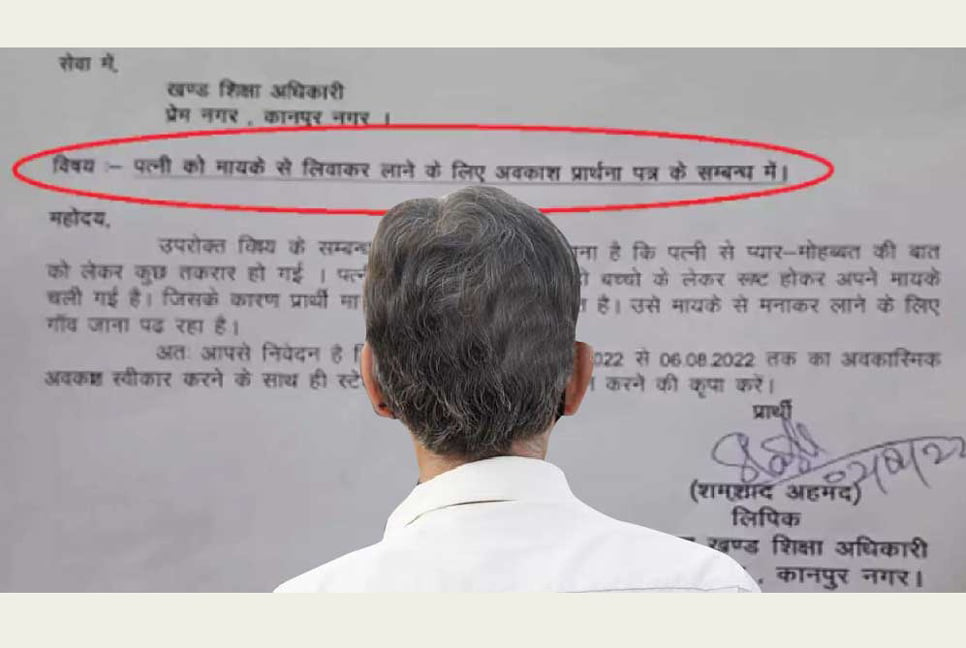 सेवा में,
खण्ड शिक्षा अधिकारी
प्रेम नगर , कानपुर नगर ।
विषय :– पत्नी को मायके से लिवाकर लाने के लिए अवकाश प्रार्थना पत्र के सम्बन्ध में।
महोदय,
उपरोक्त विषय के सम्बन्ध ना है कि पत्नी से प्यार–मोहब्बत की बात
को लेकर कुछ तकरार हो गई । पत्नी बच्चो के लेकर रूष्ट होकर अपने मायके
चली गई है। जिसके कारण प्रार्थी मा है। उसे मायके से मनाकर लाने के लिए
गॉव जाना पढ रहा है।
अतः आपसे निवेदन है 022 से 06.08.2022 तक का अवकास्मिक
अवकाश स्वीकार करने के साथ ही स्टे करने की कृपा करें।
प्रार्थी
(शमशाद अहमद)
लिपिक
खण्ड शिक्षा अधिकारी
, कानपुर नगर।